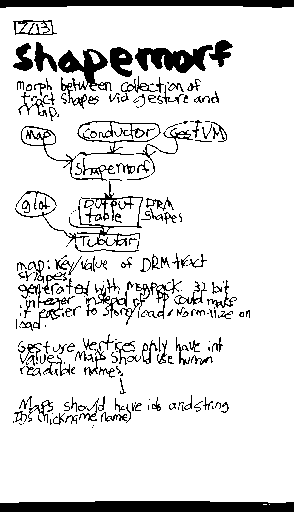 2/13
shapemorf
morph between collection of
tract shapes via gesture and
map.
Map
Conductor
GestVM
Shapemorf
glot
output
table
DRM
Shapes
Tubular
map: key/value of DRM tract
shapes.
generated with msgpack. 32 bit
integer instead of FP could make
it easier to store/load. Normalize on
load.
Gesture Vertices only have int
values. Maps should use human
readable names.
Maps should have ids and string
IDs (nickname/name)